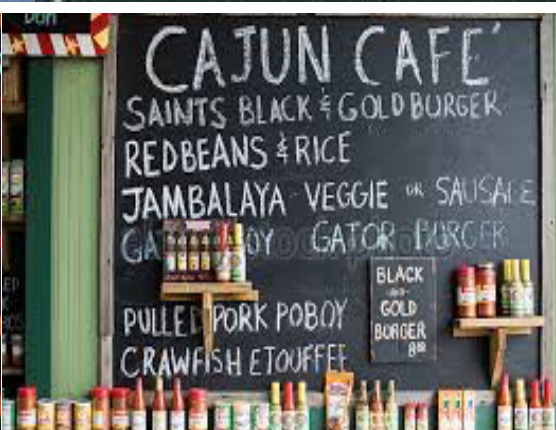 CAJUN CAFE´
SAINTS BLACK & GOLD BURGER
RED BEANS & RICE
JAMBALAYA VEGGIE OR SAUSAGE
GATOR BURGER
PULLED PORK POBOY
CRAWFISH ETOUFFEE
BLACK
GOLD
BURGER